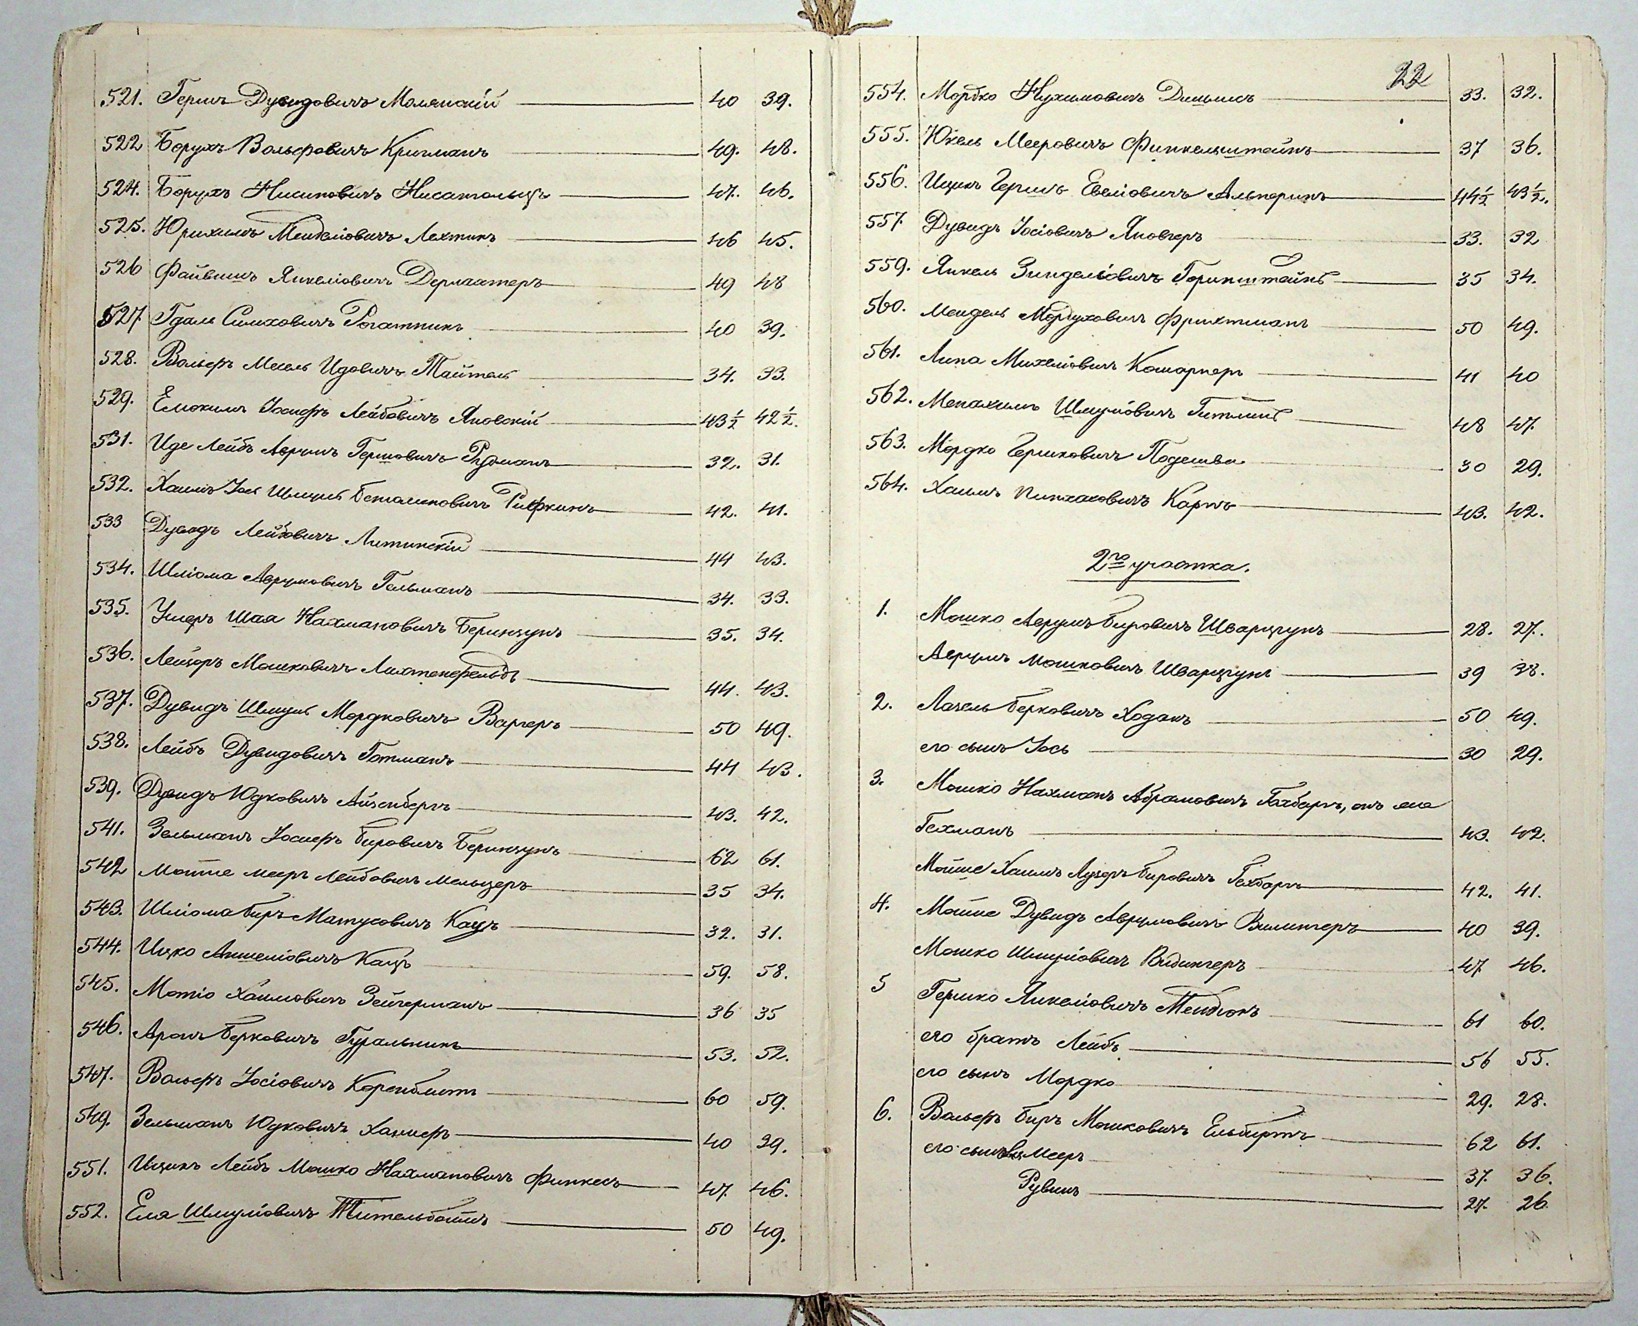 521. Гершъ Дувидовичъ Молянскій 40 39.
522 Борухъ Вольфовичъ Кричманъ 49. 48.
524. Борухъ Нисиновичъ 47. 46.
525. Юрихимъ Менделіовичъ Лехтикъ 46 45.
526 Файвишъ Янкеліовичъ 49 48
527 Гдаль Симховичъ Рогатникъ 40 39.
528. Вольфъ Мехель Идовичъ Тайтель 34. 33.
529. Елюкимъ Иосифъ Лейбовичъ Яновскій 43½ 42½.
531. Иде Лейбъ Аврумъ Гершовичъ Ридманъ 32. 31.
532. Хаимъ Иось Шмуль Рифкинъ 42. 41.
533 Дувидъ Лейбовичъ Литинскій 44 43.
534. Шліома Аврумовичъ Гельманъ 34. 33.
535. Ушеръ Шая Нахмановичъ Беринзунъ 35. 34.
536. Лейзоръ Мошковичъ Лихтенфельдъ 44. 43.
537. Дувидъ Шмуль Мордковичъ Вагнеръ 50 49.
538. Лейбъ Дувидовичъ Готманъ 44 43.
539. Дувидъ Юдковичъ Айзенбергъ 43. 42.
541. Зельманъ Иосифъ Бировичъ Беринзунъ 62 61.
542 Мотте Мееръ Лейбовичъ Мельцеръ 35 34.
543. Шліома Биръ Матусовичъ Кацъ 32. 31.
544. Ицко Аншеліовичъ Кацъ 59. 58.
545. Мотіо Хаимовичъ Зейгерманъ 36 35
546. Аронъ Берковичъ Гуральникъ 53. 52.
547. Вольфъ Іосіовичъ Коренблитъ 60 59.
549. Зельманъ Юдковичъ Ханисъ 40 39.
551. Ицикъ Лейбъ Мошко Нахмановичъ Финкель 47. 46.
552. Еля Шмуліовичъ Тительбоймъ 50 49.
22
554. Мордко Нухимовичъ 33. 32.
555. Юкель Мееровичъ Финкельштейнъ 37 36.
556. Ицикъ Гершъ Евеліовичъ Альперинъ 44½ 43½.
557 Дувидъ Іосіовичъ Яновгеръ 33. 32
559. Янкель Зинделіовичъ Горинштейнъ 35 34.
560. Мендель Мордуховичъ Фрихтманъ 50 49.
561. Липа Михеліовичъ Кошарнеръ 41 40
562. Менахимъ Шмуліовичъ Гитликъ 48 47.
563. Мордко Гершковичъ Подешва 30 29.
564. Хаимъ Пинхасовичъ Карпъ 43. 42.
2го участка.
1. Мошко Аврумъ Бировичъ Шварцзунъ 28. 27.
Аврумъ Мошковичъ Шварцзунъ 39 38.
2. Лазель Берковичъ Ходакъ 50 49.
его сынъ Іось 30 29.
3. Мошко Нахманъ Абрамовичъ Гохбаръ, онъ же
Гехманъ 43. 42.
Мойше Хаимъ Лузоръ Бировичъ Гохбаръ 42. 41.
4. Мойше Дувидъ Аврумовичъ Видингеръ 40 39.
Мошко Шмуліовичъ Видингеръ 47 46.
5 Гершко Янкеліовичъ 61 60.
его братъ Лейбъ 56 55.
его сынъ Мордко 29. 28.
6. Вольфъ Биръ Мошковичъ Ельбиртъ 62 61.
его сыновья Мееръ 37. 36.
Рувинъ 27. 26.